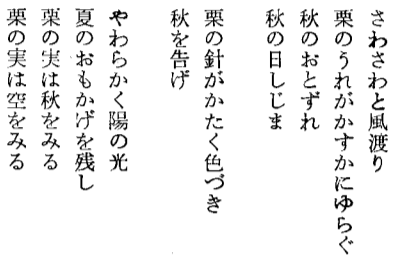 さわさわと風渡り
栗のうれがかすかにゆらぐ
秋のおとずれ
秋の日しじま
栗の針がかたく色づき
秋を告げ
やわらかく陽の光
夏のおもかげを残し
栗の実は秋をみる
栗の実は空をみる